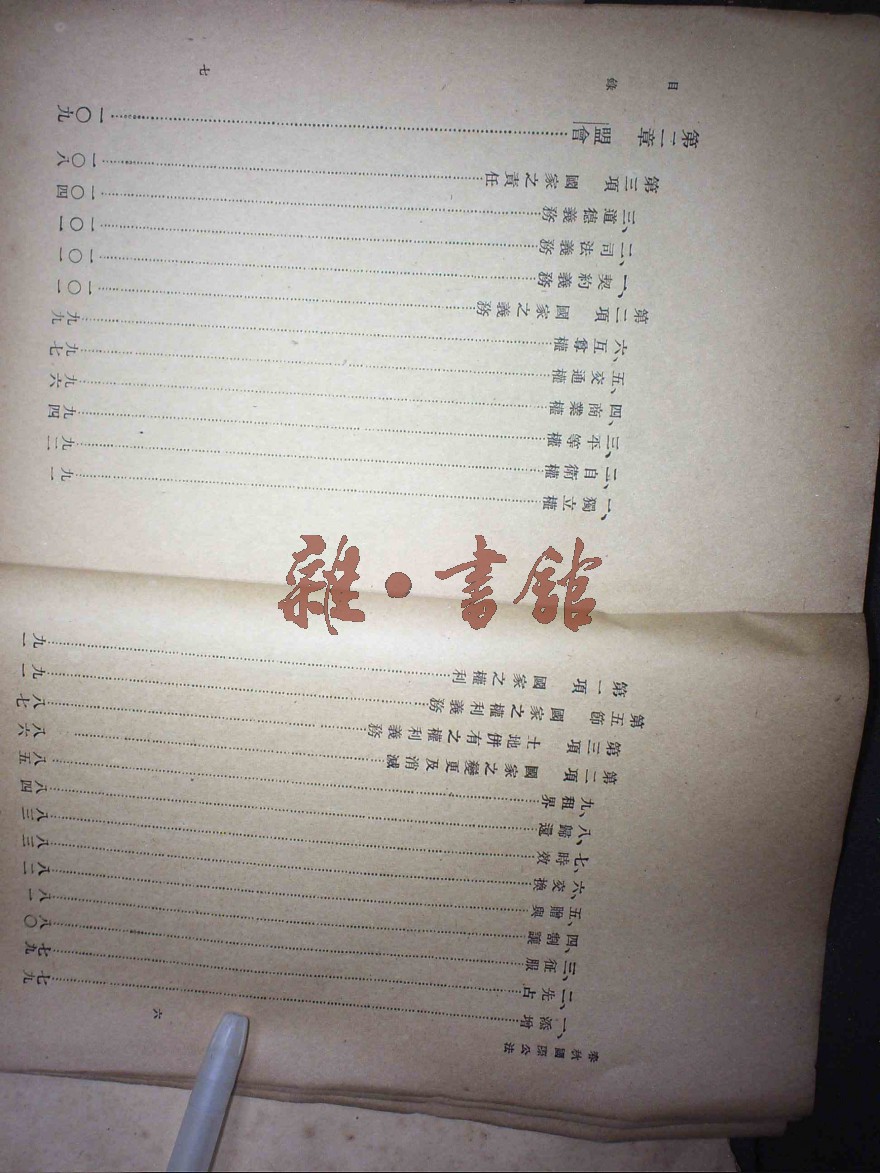 春秋國際公法 六
一、添增……七九
二、先占……七九
三、征服……八〇
四、割讓……八一
五、贈與……八二
六、交換……八三
七、時效……八三
八、歸還……八四
九、租界……八五
第二項 國家之變更及消滅……八六
第三項 土地併有之權利義務……八七
第五節 國家之權利義務……九一
第一項 國家之權利……九一
一、獨立權……九一
二、自衛權……九二
三、平等權……九四
四、商業權……九六
五、交通權……九七
六、互尊權……九九
第二項 國家之義務……一〇一
一、契約義務……一〇一
二、司法義務……一〇一
三、道德義務……一〇四
第三項 國家之責任……一〇八
第二章 盟會……一〇九
目錄 七
雜·書館